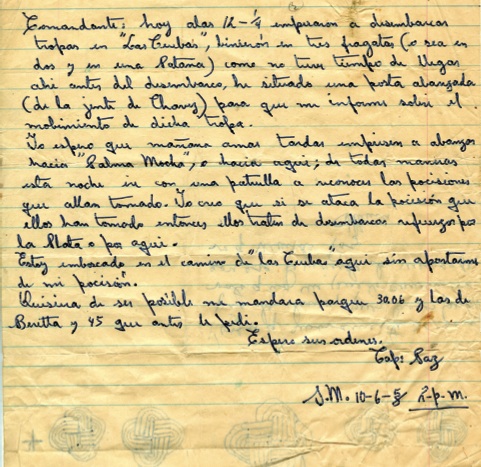 Comandante: hoy alas 12-¼ empesaron a desembarcar
tropas en "Las Cuevas", binieron en tres fragatas (o sea en
dos y en una Patana) como no tuve tiempo de llegar
ahi antes del desembarco, he situado una posta abanzada
(de la jente de Chavez) para que me informe sobre el
mobimiento de dicha tropa.
Yo espero que mañana amas tardar empiesen a abanzar
hacia "Palma Mocha", o hacia aqui; de todas maneras
esta noche ire con una patrulla a reconocer las pociciones
que allan tomado. Yo creo que si se ataca la pocición que
ellos han tomado entonces ellos traten de desembarcar refuerzos por
la Plata o por aqui.
Estoy emboscado en el camino de "las Cuebas" aqui sin apostarme
de mi pocisión.
Quisiera de ser posible me mandara parque 30.06 y las de
Beretta y 45 que antes le pedi.
Espero sus ordenes.
Cap: Paz
S.M. 10-6-58 p.m.